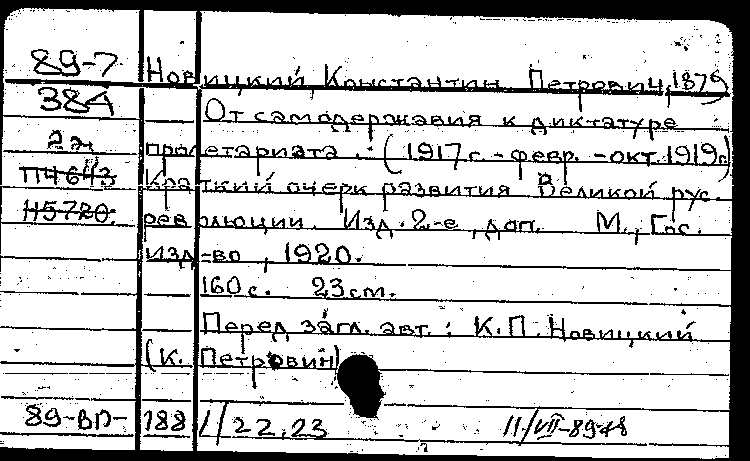 89-7 Новицкий, Константин Петрович, 1879
38А От самодержавия к диктатуре
2л пролетариата. (1917 г. - февр. - окт. 1919 г.)
П4643 Краткий очерк развития Великой рус.
Н5720. революции. Изд. 2-е, доп. М., Гос.
изд-во, 1920.
160 с. 23 см.
Перед загл. авт.: К.П. Новицкий
(К. Петровин)
89-ВП-188 1/22,23 11/VII-89